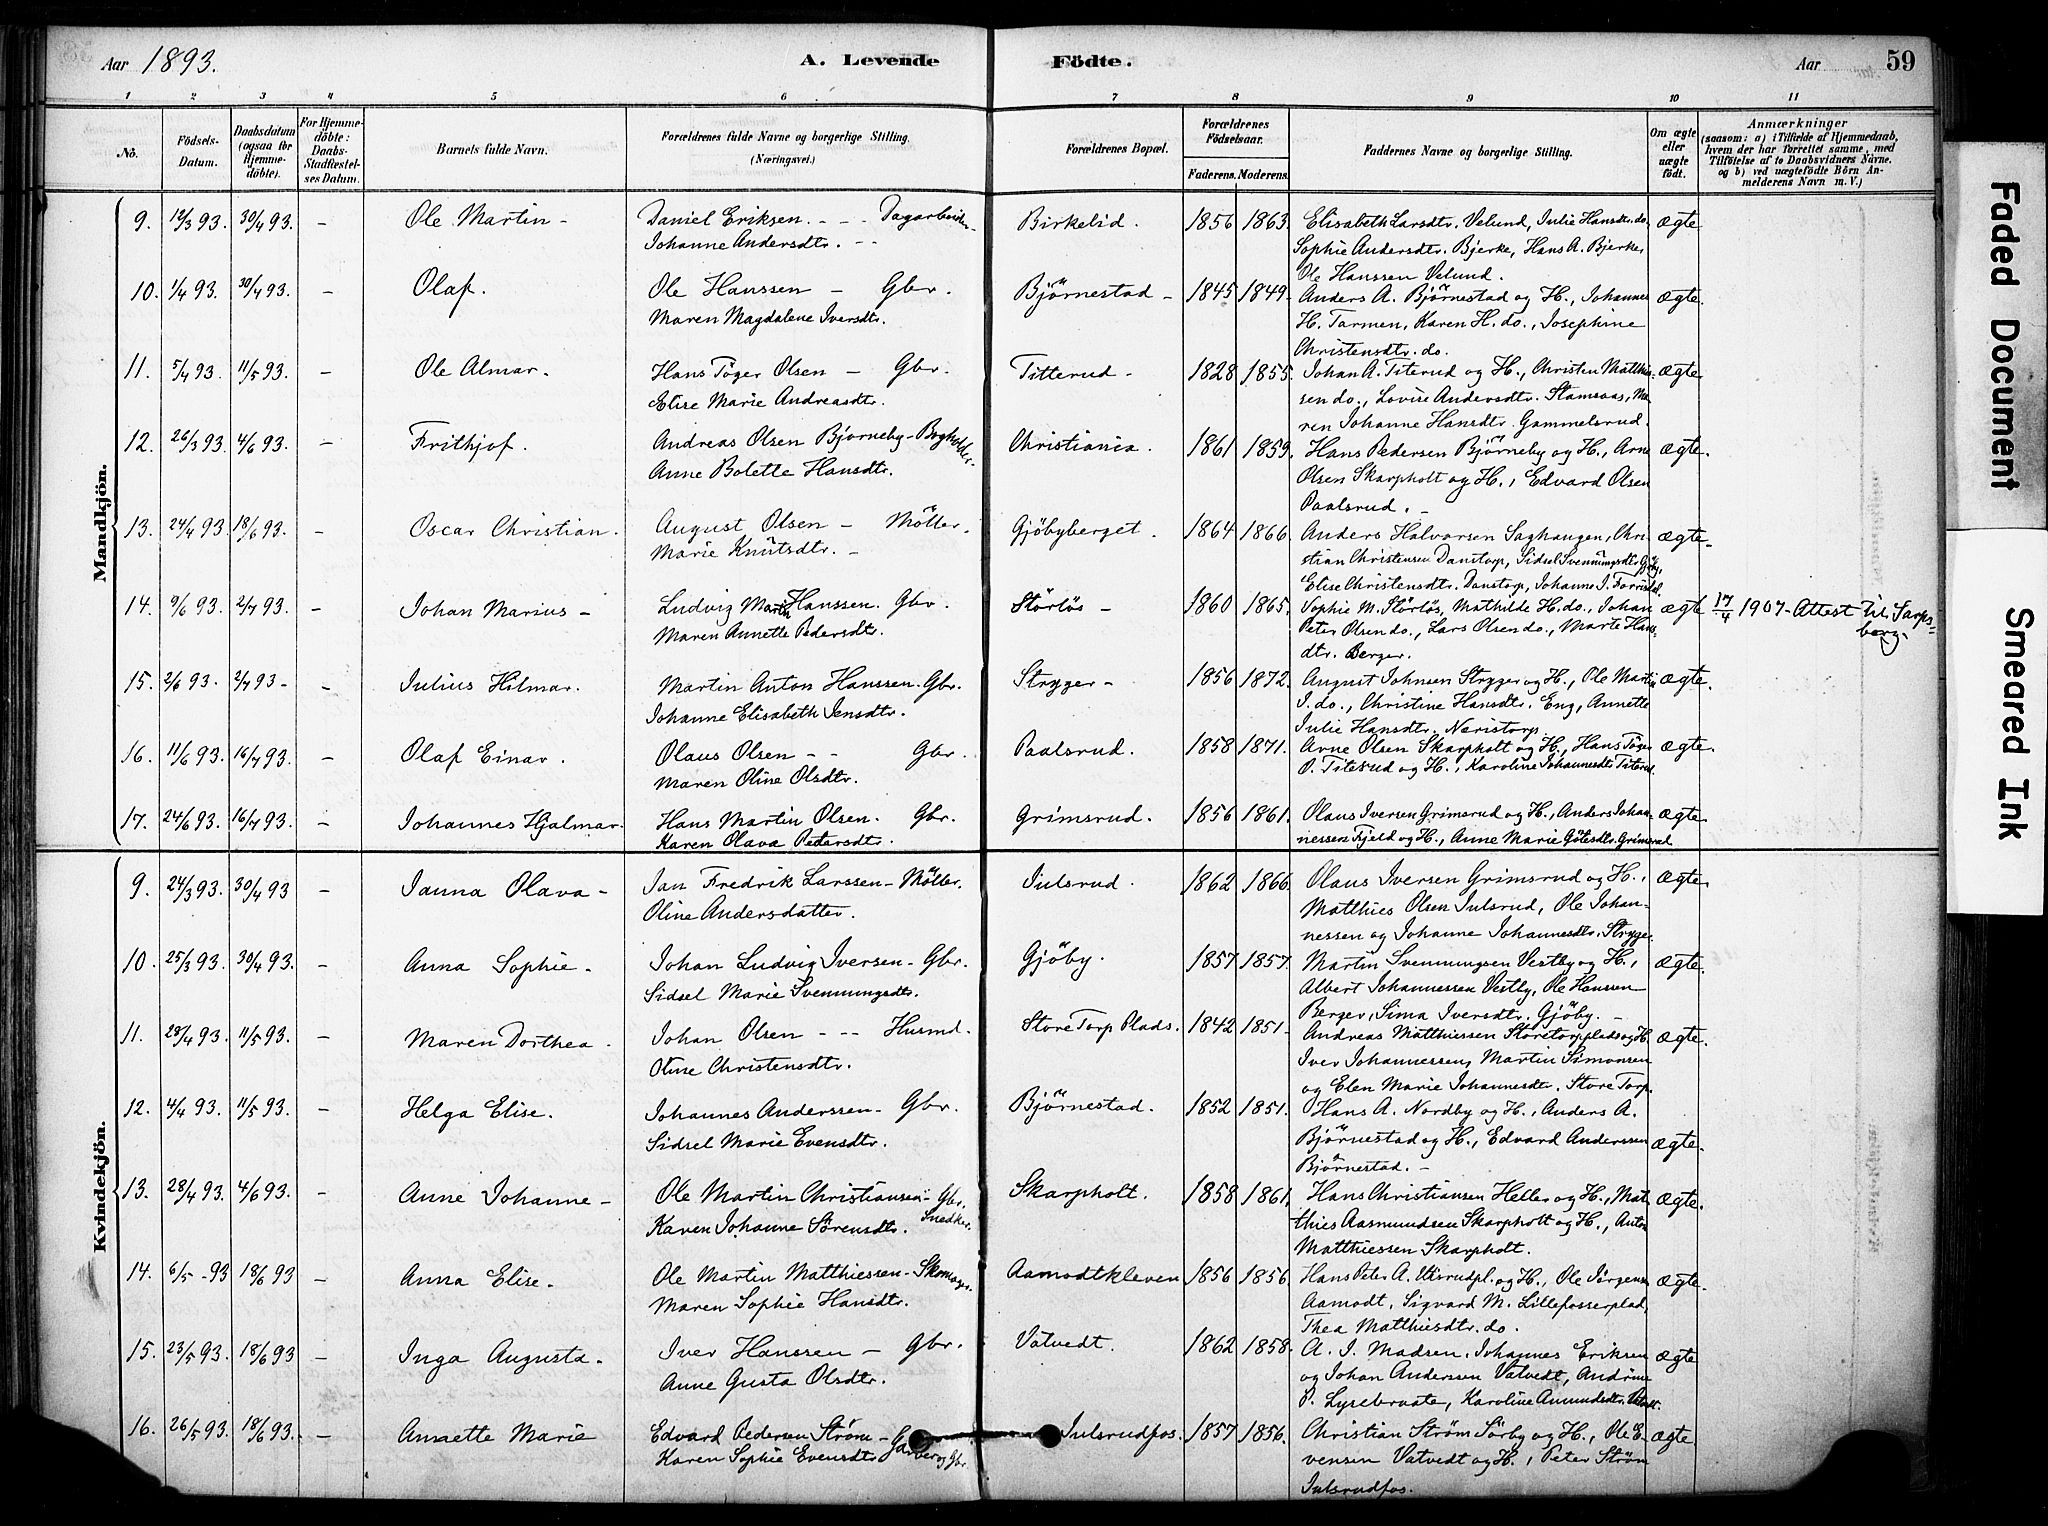 Aar 1893. A. Levende Födte. Aar 59
1 2 3 4 5 6 7 8 9 10 11
No. Födsels-Datum. Daabsdatum (ogsaa for Hjemme-döbte). For Hjemme-döbte: Daabs-Stadfæstel-ses Datum. Barnets fulde Navn. Forældrenes fulde Navne og borgerlige Stilling. (Næringsvei.) Forældrenes Bopæl. Forældrenes Födselsaar. Faderens. Moderens. Faddernes Navne og borgerlige Stilling. Om ægte eller uægte födt. Anmærkninger (saasom: a) i Tilfælde af Hjemmedaab, hvem der har forrettet samme, med Tilföielse af to Daabsvidners Navne, og b) ved uægtefödte Börn An-melderens Navn m. V.)
Mandkjön.
9. 12/3 93. 30/4 93. - Ole Martin - Daniel Eriksen - - Dagarbeider Birkelid. 1856 1863. Elisabeth Larsdtr. Velund, Julie Hansdtr. do. ægte
Johanne Andersdtr. - - Sophie Andersdtr. Bjerke, Hans A. Bjerke,
Ole Hanssen Velund.
10. 1/4 93. 30/4 93. - Olaf. Ole Hanssen - Gbr. Björnestad - 1845 1849. Anders A. Björnestad og H., Johannes ægte
Maren Magdalene Iversdtr. H. Tarmen, Karen H. do., Josephine
Christensdtr. do.
11. 5/4 93. 11/5 93. - Ole Almar. Hans Töger Olsen - Gbr. Titterud. 1828 1855. Johan A. Titerud og H., Christen Matthie- ægte
Elise Marie Andreasdtr. sen do., Lovise Andersdtr. Stamsaas, Ma-
ren Johanne Hansdtr. Gammelsrud.
12. 26/3 93. 4/6 93. - Frithjof. Andreas Olsen Bjorneby - Bogholder - Christiania. 1861 1859. Hans Pedersen Björneby og H., Arne ægte.
Anne Bolette Hansdtr. Olsen Skarpholt og H., Edvard Olsen
Paalsrud. -
13. 24/4 93. 18/6 93. - Oscar Christian. August Olsen - Möller. Gjöbyberget. 1864 1866. Anders Halvorsen Saghaugen, Chri- ægte
Marie Knutsdtr. - stian Christensen Danstorp, Sidsel Svenningsdtr. Gjöby,
Elise Christensdtr. Danstorp, Johanne I.
14. 9/6 93. 2/7 93. - Johan Marius - Ludvig Martin Hanssen. Gbr. Störlös - 1860 1865. Sophie M. Störlös, Mathilde H. do., Johan ægte 17/4 1907 - Attest til Sarps-
Maren Annette Pedersdtr. Peter Olsen do., Lars Olsen do., Marte Hans- berg.
dtr. Berger.
15. 2/6 93. 2/7 93 - - Julius Hilmar. Martin Anton Hanssen. Gbr. Stryger - 1856 1872. August Johnsen Stryger og H., Ole Martin ægte.
Johanne Elisabeth Jensdtr. J. do., Christine Hansdtr. Eng, Annette
Julie Hansdtr. Neristorp.
16. 11/6 93. 16/7 93. - Olaf Einar. Olaus Olsen - - Gbr. Paalsrud. 1858 1871. Arne Olsen Skarpholt og H., Hans Töger ægte.
Maren Oline Olsdtr. O. Titerud og H., Karoline Johannesdtr. Titerud.
17. 24/6 93. 16/7 93. - Johannes Hjalmar. Hans Martin Olsen. Gbr. Grimsrud. 1856 1861. Olaus Iversen Grimsrud og H., Anders Johan- ægte.
Karen Olava Pedersdtr. nessen Fjeld og H., Anne Marie Götesdtr. Grimsrud
Kvindekjön.
9. 24/3 93. 30/4 93 - Janna Olava - Jan Fredrik Larssen - Möller. Julsrud. 1862 1866. Olaus Iversen Grimsrud og H., ægte.
Oline Andersdatter. Matthies Olsen Julsrud, Ole Johan-
nessen og Johanne Johannesdtr. Stryger
10. 25/3 93. 30/4 93. - Anna Sophie. Johan Ludvig Iversen - Gbr. Gjöby. 1857 1857. Martin Svenningsen Vestby og H., ægte.
Sidsel Marie Svenningsdtr. Albert Johannessen Vestby, Ole Hansen
Berger, Sima Iversdtr. Gjöby. -
11. 28/4 93. 11/5 93. - Maren Dorthea. Johan Olsen - - Husmd. Store Torp Plads. 1842 1851. Andreas Matthiessen Storetorpplads og H. ægte.
Oline Christensdtr. Iver Johannessen, Martin Simonsen
og Elen Marie Johannesdtr. Store Torp.
12. 4/4 93. 11/5 93. - Helga Elise. Johannes Anderssen - Gbr. Björnestad. 1852 1851. Hans A. Nordby og H., Anders A.
Sidsel Marie Evensdtr. Björnestad og H., Edvard Anderssen ægte.
Björnestad. -
13. 28/4 93. 4/6 93. - Anne Johanne - Ole Martin Christiansen - Gbr. Skarpholt. 1858 1861. Hans Christiansen Heller og H., Mat- ægte.
Karen Johanne Sörensdtr. Snedker. thies Aasmundsen Skarpholt og H., Anton
Matthiessen Skarpholt.
14. 6/5 - 93 18/6 93 - Anna Elise. Ole Martin Matthiessen - Skomager. Aamodtkleven 1856 1856. Hans Peter A. og H., Ole Jörgensen ægte.
Maren Sophie Hansdtr. Aamodt, Sigvard M. Lillefosserplad,
Thea Matthiesdtr. do.
15. 23/5 93. 18/6 93 - Inga Augusta. Iver Hanssen - Gbr. Vatvedt. 1862 1858. A. J. Madsen, Johannes Eriksen ægte
Anne Gusta Olsdtr. og Johan Anderssen Vatvedt, Andrine
P. Lysebraate, Karoline Amundsdtr. Vatvedt.
16. 26/5 93. 18/6 93. - Annette Marie Edvard Pedersen Ström - Garver og Gbr. Julsrudfos. 1857 1856. Christian Ström Sörby og H., Ole E- ægte
Karen Sophie Evensdtr. vensen Vatvedt og H., Peter Ström
Julsrudfos.
Faded Document
Smeared Ink